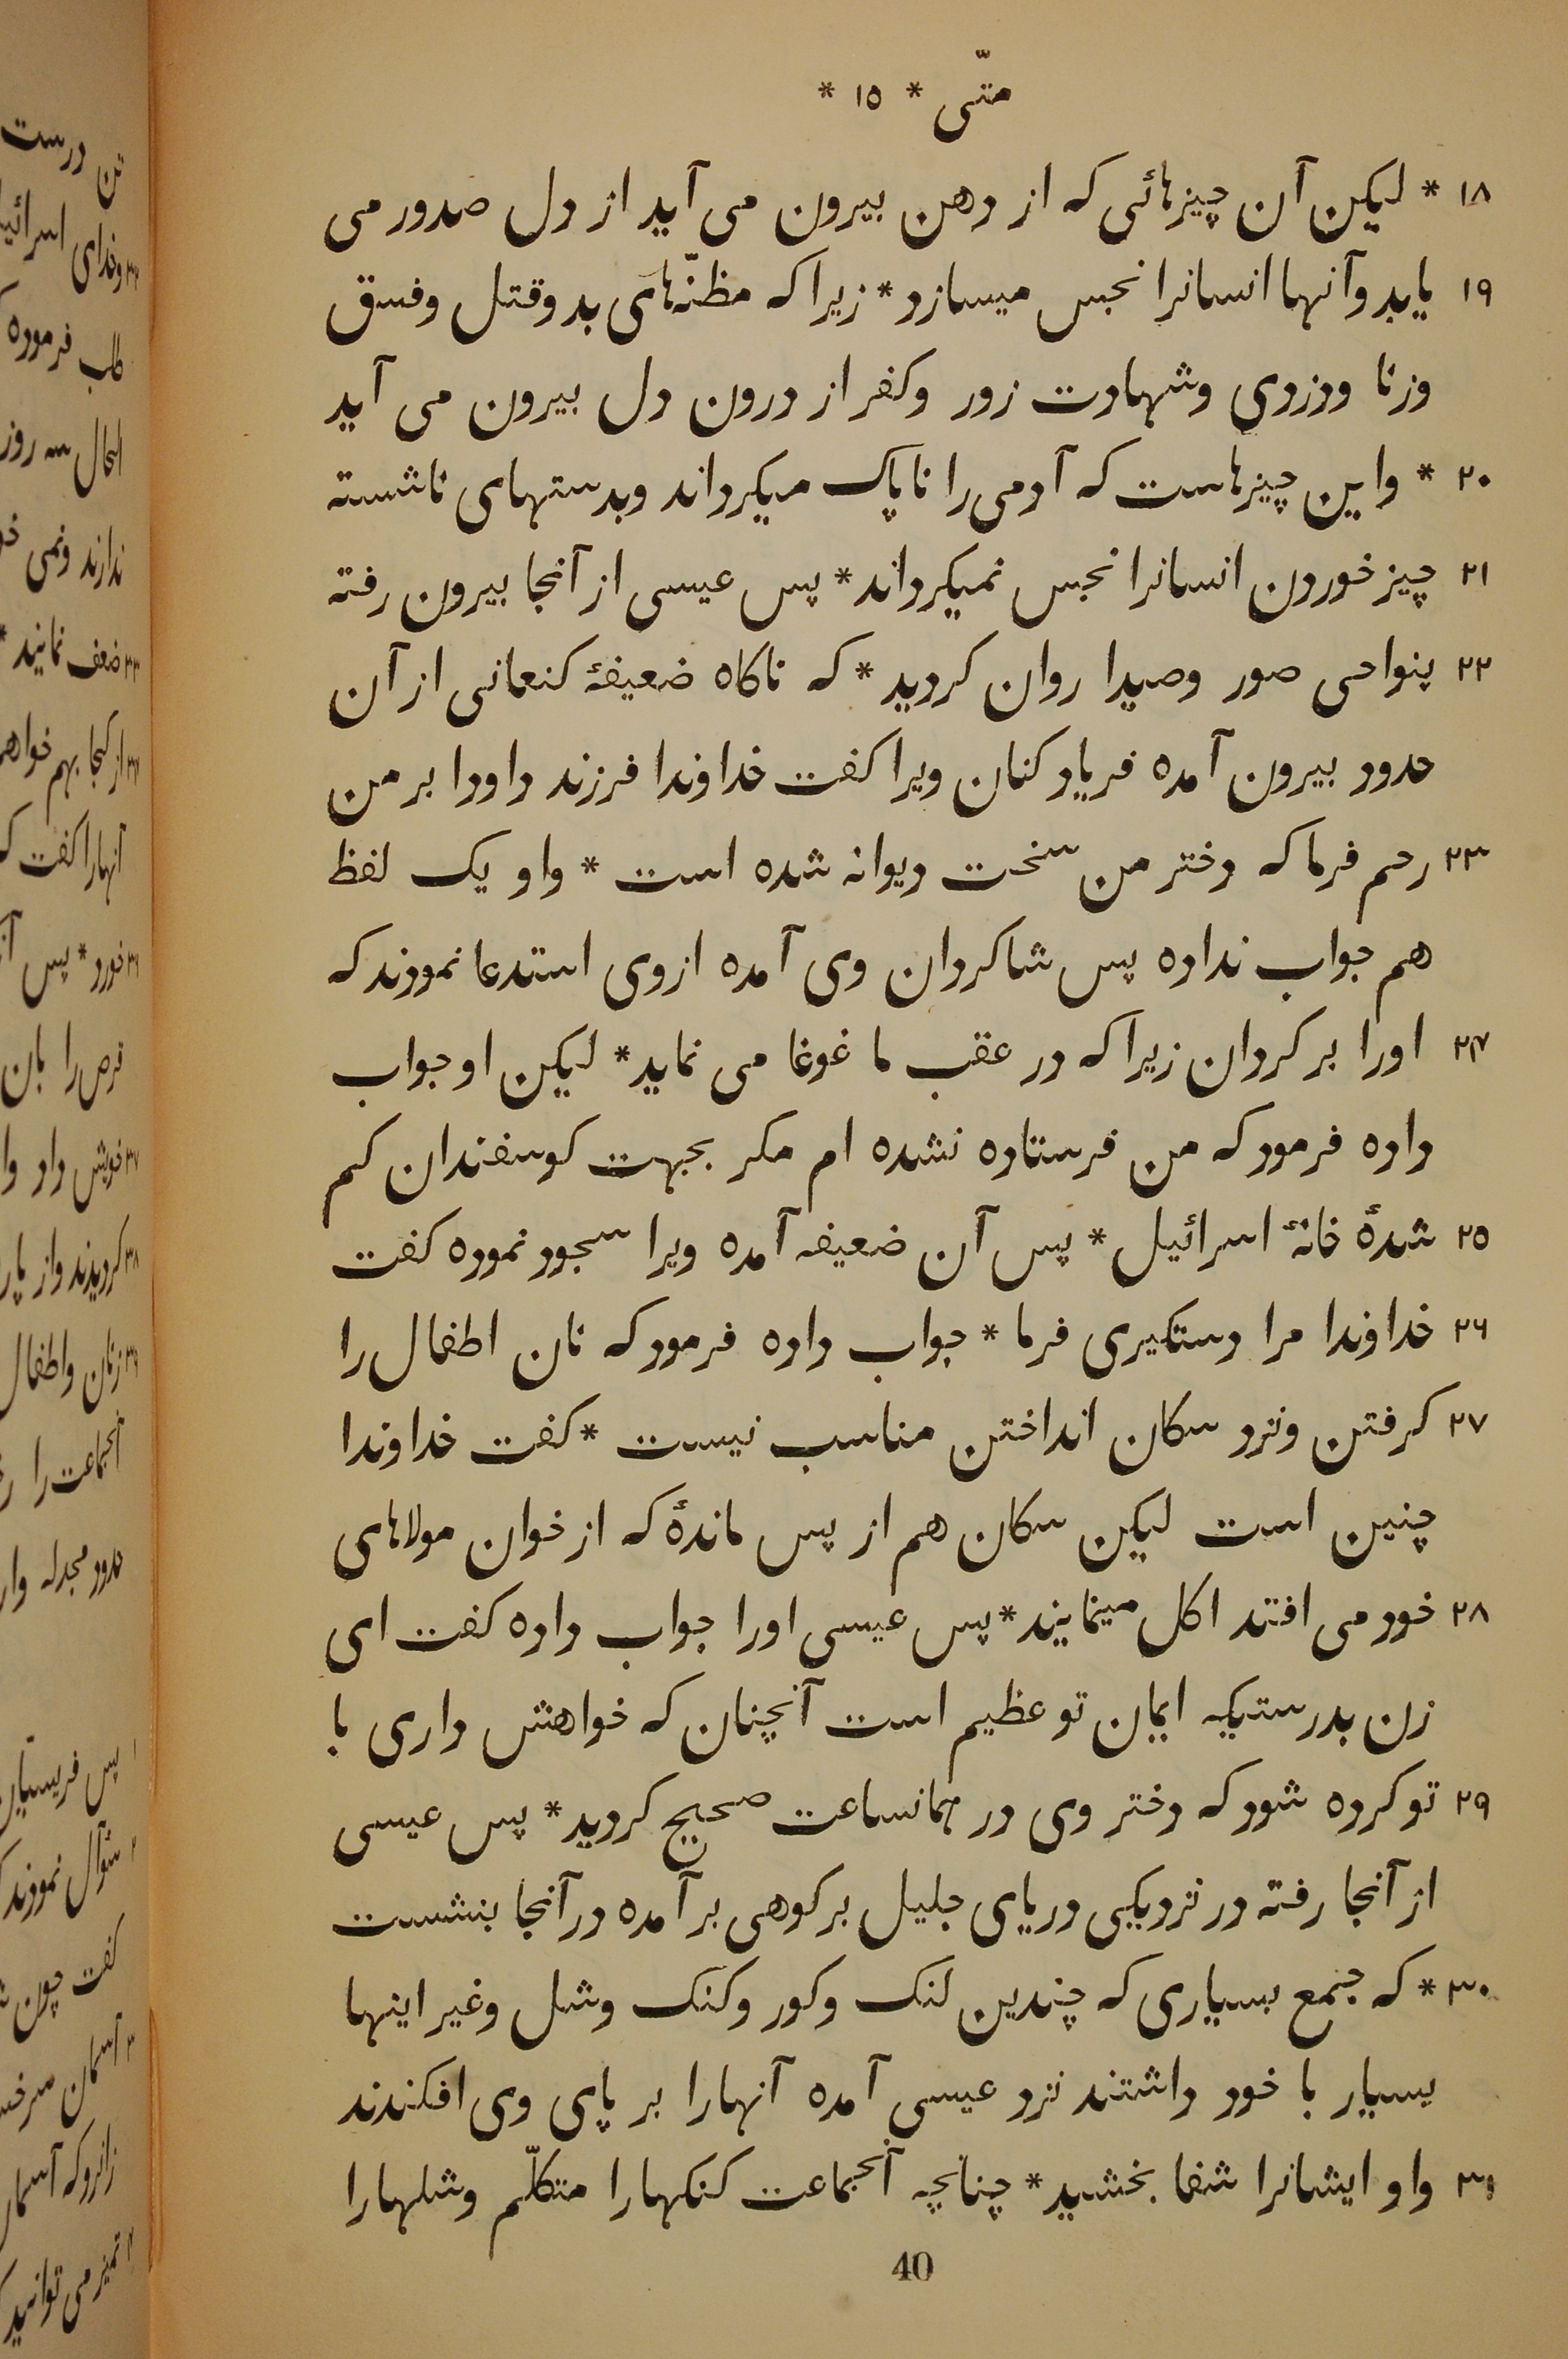 متّی * ١٥ *
١٨ * لیکن آن چیزهائی که از دهن بیرون می آید از دل صدور می
١٩ یابد وآنها انسانرا نجس میسازد * زیرا که مظنّهای بد وقتل وفسق
وزنا ودزدی وشهادت زور وکفر از درون دل بیرون می آید
٢٠ * واین چیزهاست که آدمی را ناپاک میکرداند وبدستهای ناشسته
٢١ چیز خوردن انسانرا نجس نمیکرداند * پس عیسی از آنجا بیرون رفته
٢٢ بنواحی صور وصیدا روان کردید * که ناکاه ضعیفهٔ کنعانی از آن
حدود بیرون آمده فریاد کنان ویرا کفت خداوندا فرزند داودا بر من
٢٣ رحم فرما که دختر من سخت دیوانه شده است * واو یک لفظ
هم جواب نداده پس شاکردان وی آمده ازوی استدعا نمودند که
٢٤ اورا بر کردان زیرا که در عقب ما غوغا می نماید * لیکن او جواب
داده فرمود که من فرستاده نشده ام مکر بجهت کوسفندان کم
٢٥ شدهٔ خانهٔ اسرائیل * پس آن ضعیفه آمده ویرا سجود نموده کفت
٢٦ خداوندا مرا دستکیری فرما * جواب داده فرمود که نان اطفال را
٢٧ کرفتن ونزد سکان انداختن مناسب نیست * کفت خداوندا
چنین است لیکن سکان هم از پس ماندهٔ که از خوان مولاهای
٢٨ خود می افتد اکل مینمایند * پس عیسی اورا جواب داده کفت ای
زن بدرستیکه ایمان تو عظیم است آنچنان که خواهش داری با
٢٩ تو کرده شود که دختر وی در همانساعت صحیح کردید * پس عیسی
از آنجا رفته در نزدیکی دریای جلیل بر کوهی بر آمده در آنجا بنشست
٣٠ * که جمع بسیاری که چندین لنک وکور وکنک وشل وغیر اینها
بسیار با خود داشتند نزد عیسی آمده آنهارا بر پای وی افکندند
٣١ واو ایشانرا شفا بخشید * چنانچه آنجماعت کنکهارا متکلّم وشلهارا
40